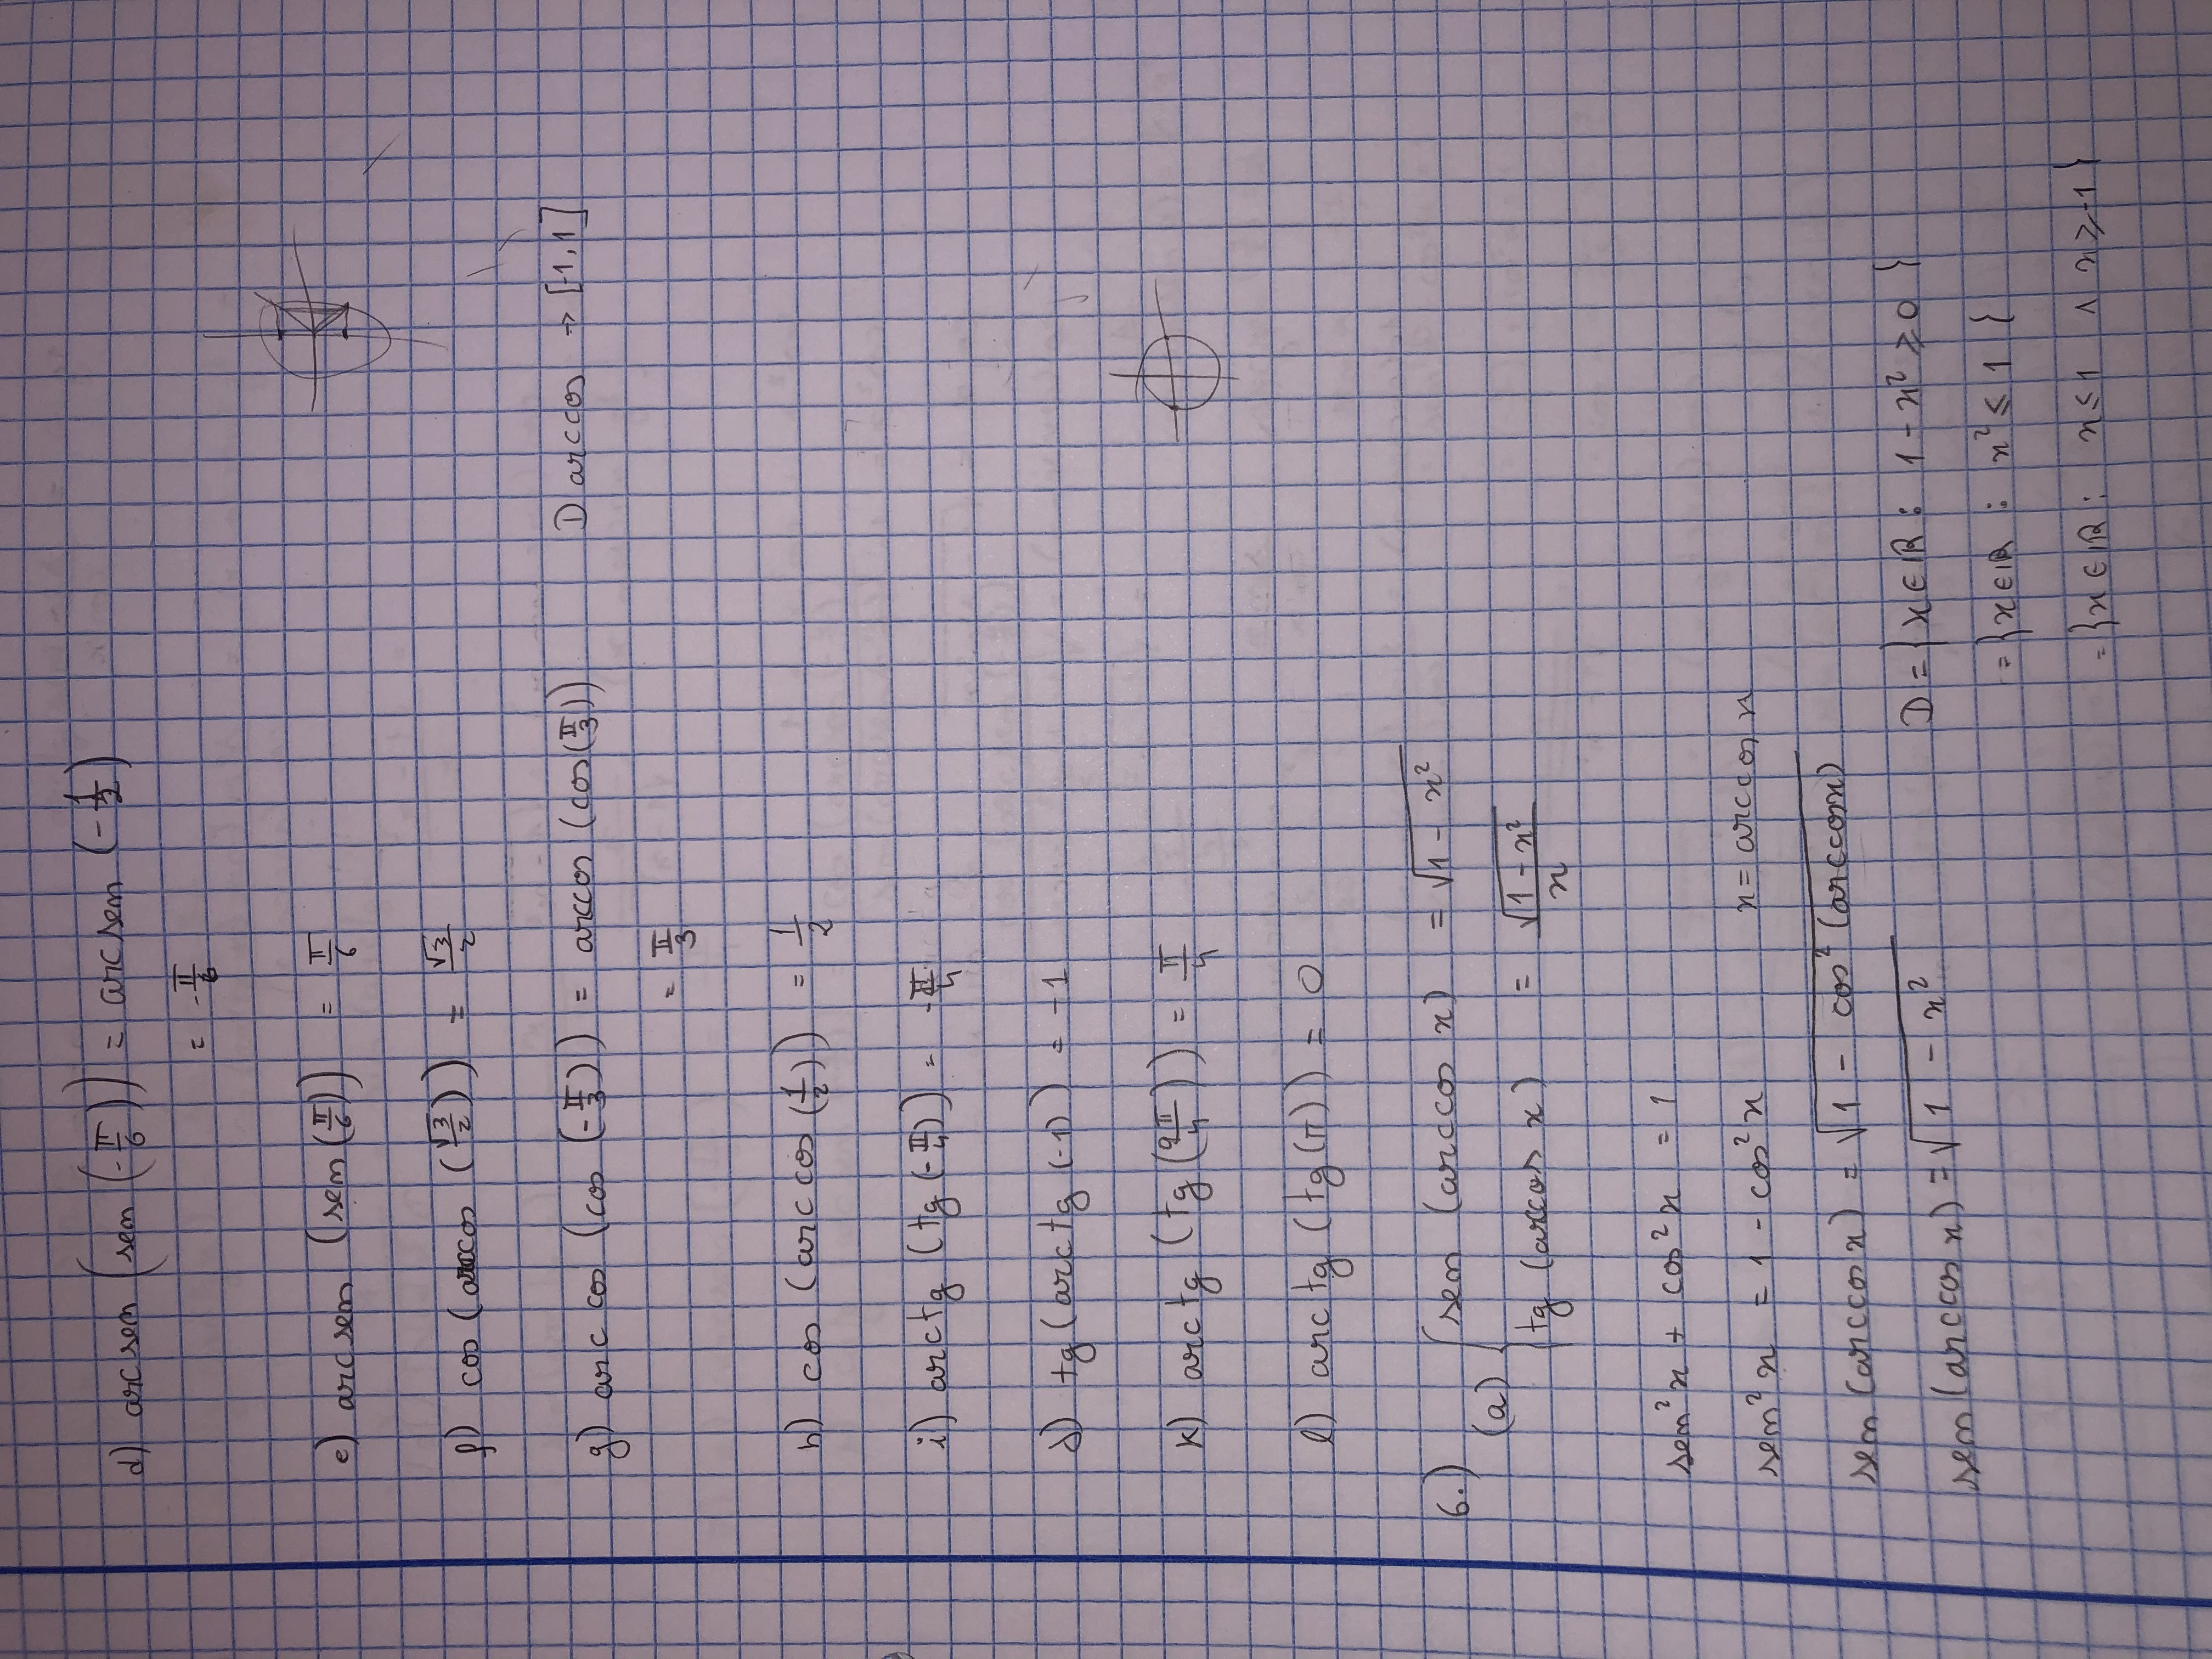 d) arcsen (sen (-π/6)) = arcsen (-1/2)
= -π/6
e) arcsen (sen (π/6)) = π/6
f) cos (arccos (√3/2)) = √3/2
g) arccos (cos (-π/3)) = arccos (cos (π/3)) D arccos → [-1,1]
= π/3
h) cos (arccos (1/2)) = 1/2
i) arctg (tg (-π/4)) = -π/4
j) tg (arctg (-1)) = -1
k) arctg (tg (9π/4)) = π/4
l) arctg (tg (π)) = 0
6.)
(a) { sen (arccos x) = √(1 - x²)
tg (arccos x) = √(1 - x²)/x
sen² x + cos² x = 1
sen² x = 1 - cos² x x = arccos x
sen (arccos x) = √(1 - cos² (arccos x))
sen (arccos x) = √(1 - x²) D = { x ∈ ℝ : 1 - x² ≥ 0 }
= { x ∈ ℝ : x² ≤ 1 }
= { x ∈ ℝ : x ≤ 1 ∧ x ≥ -1 }